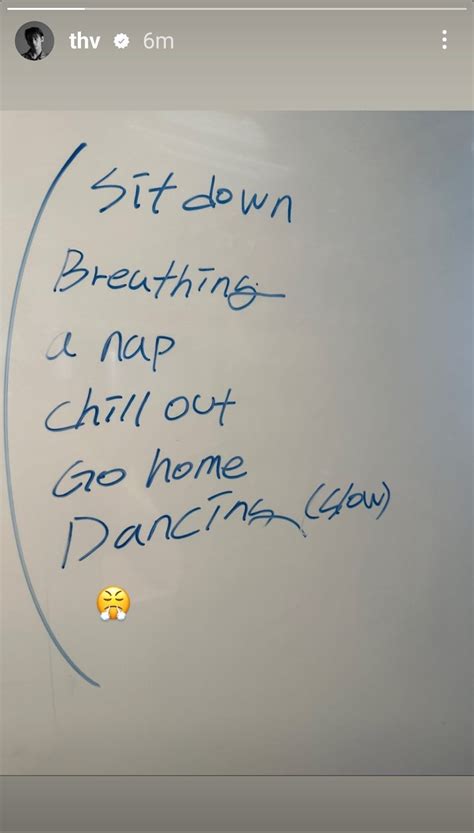 thv 6m
Sit down
Breathing
a nap
chill out
Go home
Dancing (slow)
😤